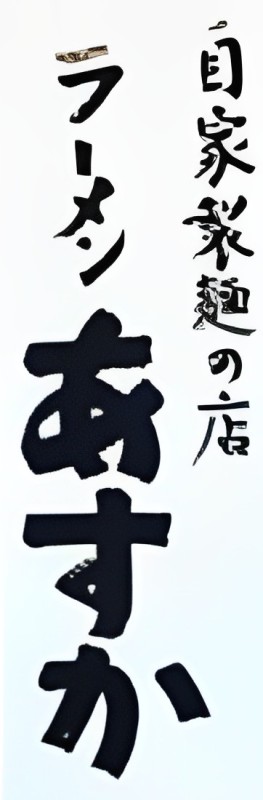 自家製麺の店
ラーメン あすか